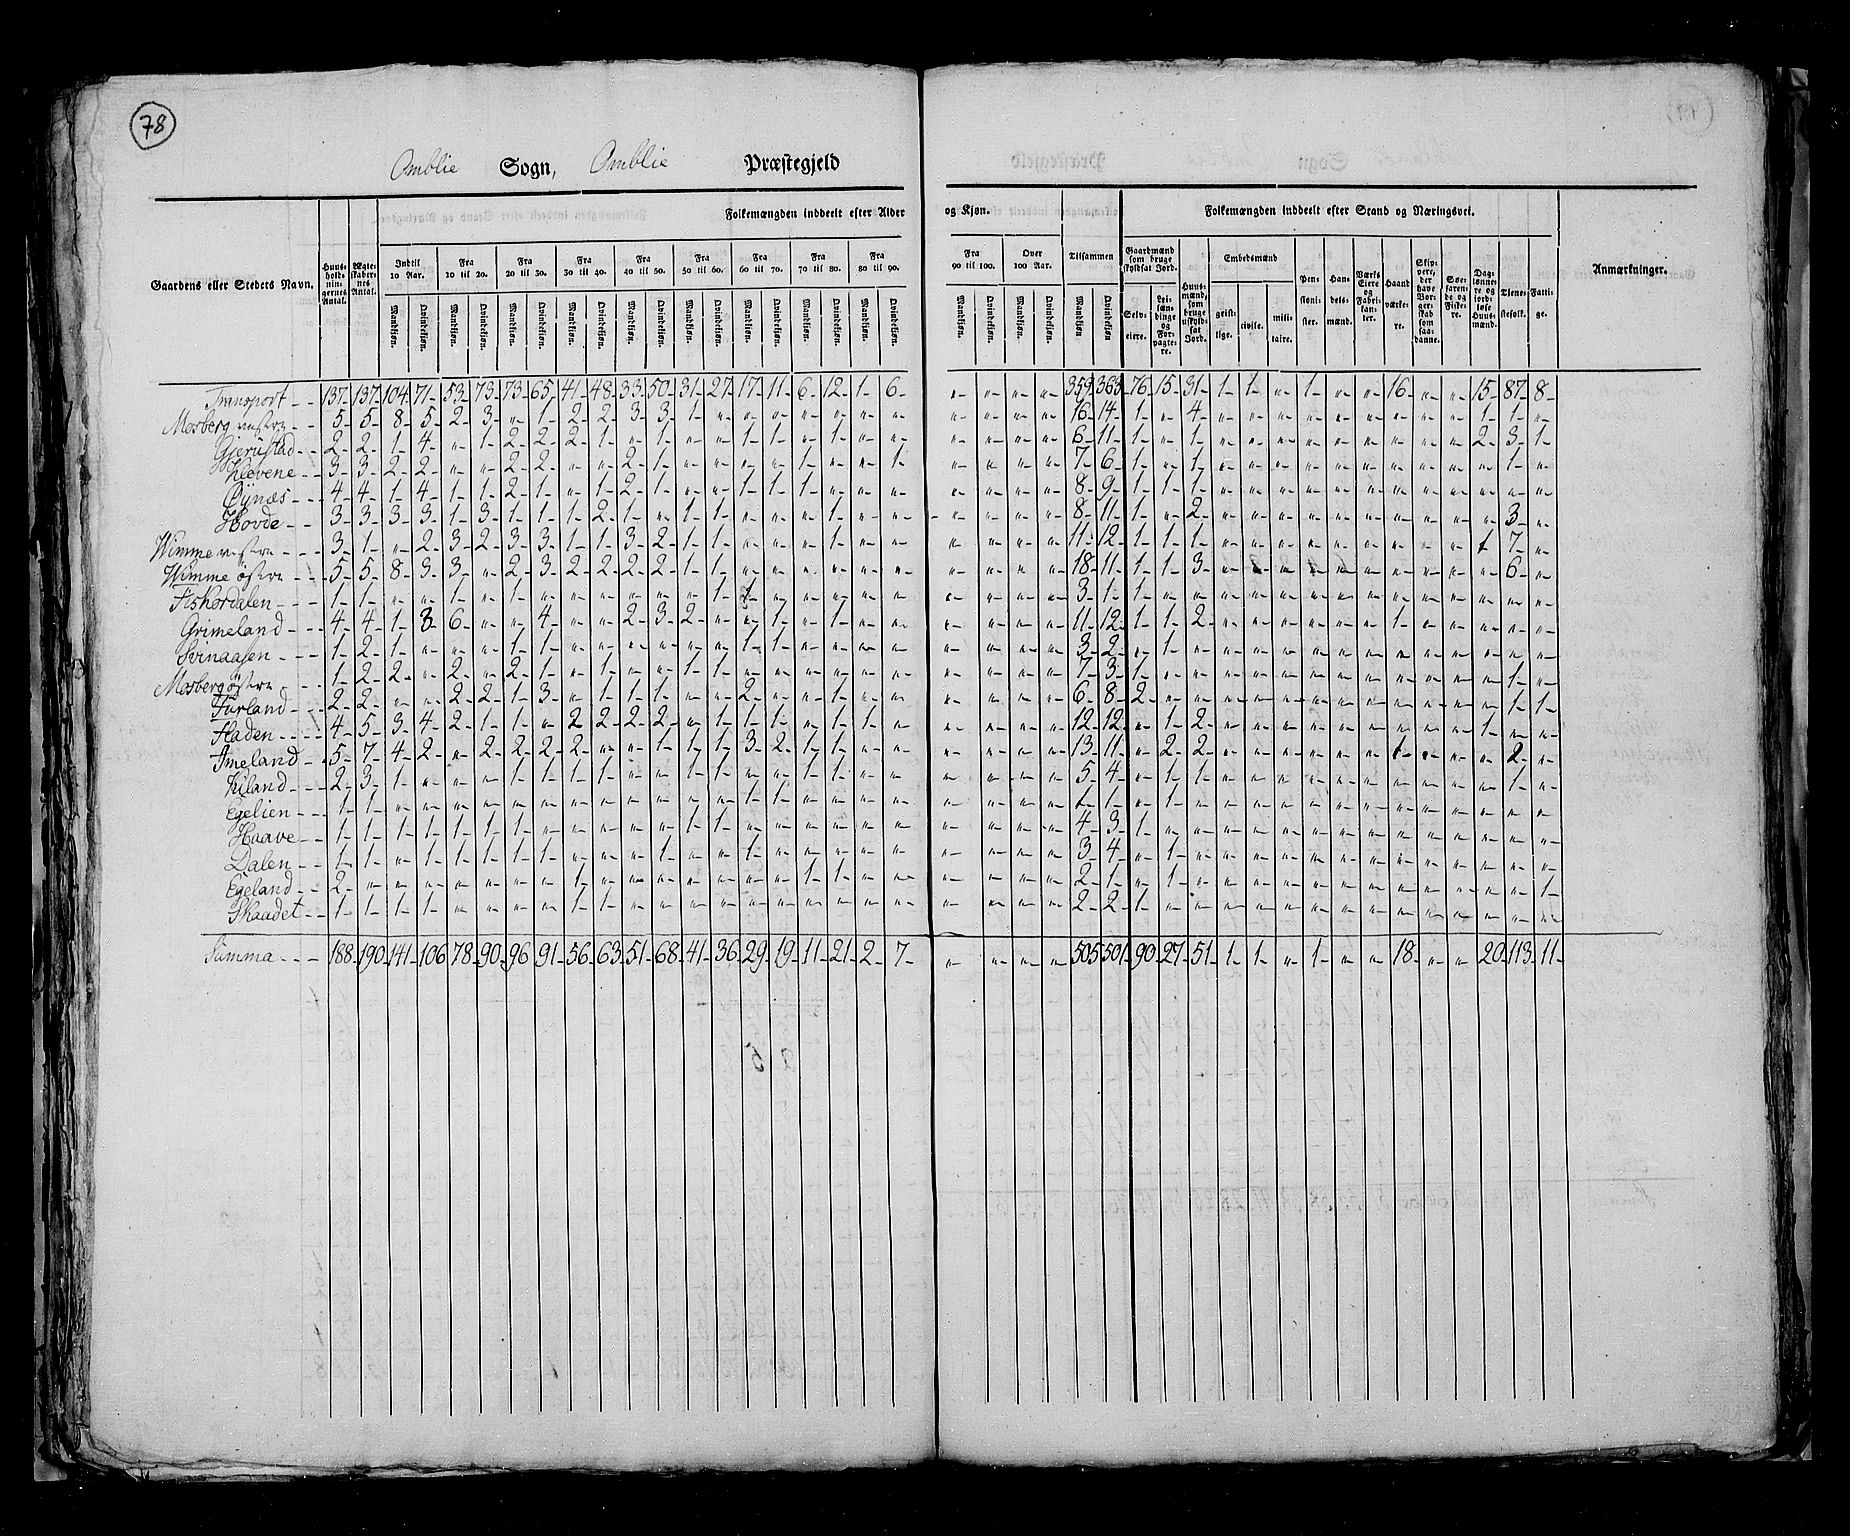 78
Omblie Sogn, Omblie Præstegjeld
Folkemængden inddeelt efter Alder og Kjøn. Folkemængden inddeelt efter Stand og Næringsvei.
Gaardens eller Stedets Navn. Huus-hold-nin-gernes Antal. Ægte-skaber-nes Antal. Indtil 10 Aar. Fra 10 til 20. Fra 20 til 30. Fra 30 til 40. Fra 40 til 50. Fra 50 til 60. Fra 60 til 70. Fra 70 til 80. Fra 80 til 90. Fra 90 til 100. Over 100 Aar. Tilsammen Gaardmænd som bruge skyldsat Jord. Huus-mænd, som bruge uskyld-sat Jord. Embedsmænd Pen-sioni-ster. Han-dels-mænd. Værks Eiere og Fabri-kan-ter. Haand værke-re. Skip-pere, der have Bor-ger-skab som saa-danne. Søe-farende og Fiske-re. Dag-lønne-re og jord-løse Huus-mænd. Tjene-stefolk. Fatti-ge. Anmærkninger.
Mandkjøn. Qvindekjøn. Mandkjøn. Qvindekjøn. Mandkjøn. Qvindekjøn. Mandkjøn. Qvindekjøn. Mandkjøn. Qvindekjøn. Mandkjøn. Qvindekjøn. Mandkjøn. Qvindekjøn. Mandkjøn. Qvindekjøn. Mandkjøn. Qvindekjøn. Mandkjøn. Qvindekjøn. Mandkjøn. Qvindekjøn. Mandkjøn Qvindekjøn Selv-eiere. Lei-læn-dinge og For-pagte-re. geist-lige. civile. mili-taire.
Transport 137 137 104 71 53 73 73 65 41 48 33 50 31 27 17 11 6 12 1 6 " " " " 359 363 76 15 31 1 1 " 1 " " 16 " " 15 87 8
Mosberg vestre 5 5 8 5 2 3 " 1 2 2 3 3 1 " " " " " " " " " " " 16 14 1 " 4 " " " " " " " " " 1 1 "
Gjerustad 2 2 1 4 " 1 2 2 2 1 " 1 " " 1 1 " 1 " " " " " " 6 11 1 " 1 " " " " " " " " " 2 3 1
Klevene 3 3 2 2 " " 2 2 " " 2 1 " " " " 1 " " 1 " " " " 7 6 1 " 1 " " " " " " " " " " 1 "
Øynæs 4 4 1 4 1 1 2 1 " 1 2 1 " " 1 1 1 " " " " " " " 8 9 1 1 1 " " " " " " " " " " " "
Hovde 3 3 3 3 1 3 1 1 1 2 1 " 1 1 " " " 1 " " " " " " 8 11 1 " 2 " " " " " " " " " " 3 "
Wimme vestre 3 1 " 2 3 2 3 3 1 1 3 2 1 1 " " " 1 " " " " " " 11 12 1 1 1 " " " " " " " " " 1 7 "
Wimme østre 5 5 8 3 3 " 2 3 2 2 2 2 1 1 " " " " " " " " " " 18 11 1 1 3 " " " " " " " " " " 6 "
Fiskerdalen 1 1 " " 1 " 1 " " " " " " 1 1 " " " " " " " " " 3 1 1 " " " " " " " " " " " " " "
Grimeland 4 4 1 3 6 " " 4 " " 2 3 2 " " 1 " 1 " " " " " " 11 12 1 1 2 " " " " " " 1 " " " " "
Svinaasen 1 2 1 " " " 1 1 " " " " " " 1 1 " " " " " " " " 3 2 " 1 " " " " " " " " " " " " "
Mosberg østre 1 2 2 " 2 " 2 1 " 1 " " 1 1 " " " " " " " " " " 7 3 1 " " " " " " " " " " " " 1 "
Furland 2 2 " " 2 2 1 3 " 1 1 1 " " 2 " " 1 " " " " " " 6 8 2 " " " " " " " " " " " " 1 1
Haden 4 5 3 4 2 1 1 " 2 2 2 2 " 1 1 1 " 1 1 " " " " " 12 12 " 1 2 " " " " " " " " " 1 " "
Imeland 5 7 4 2 " 2 2 2 2 " " 1 1 1 3 2 1 1 " " " " " " 13 11 " 2 2 " " " " " " 1 " " " 2 "
Kiland 2 3 1 " " " 1 1 1 1 " " 1 1 " " 1 1 " " " " " " 5 4 " 1 1 " " " " " " " " " " 1 "
Egelien 1 1 " " " " " " " " " " " " 1 1 " " " " " " " " 1 1 " 1 " " " " " " " " " " " " "
Haave 1 1 1 1 1 1 1 " " " " " 1 1 " " " " " " " " " " 4 3 1 " " " " " " " " " " " " " "
Dalen 1 1 " 1 1 1 1 1 " " " 1 " " 1 " " " " " " " " " 3 4 " 1 " " " " " " " " " " " " "
Egeland 2 " " " " " " " 1 " " " " " " " 1 1 " " " " " " 2 1 " 1 " " " " " " " " " " " " 1
Skaadet 1 1 1 1 " " " " 1 1 " " " " " " " " " " " " " " 2 2 1 " " " " " " " " " " " " " "
Summa 188 190 141 106 78 90 96 91 56 63 51 68 41 36 29 19 11 21 2 7 " " " " 505 501 90 27 51 1 1 " 1 " " 18 " " 20 113 11